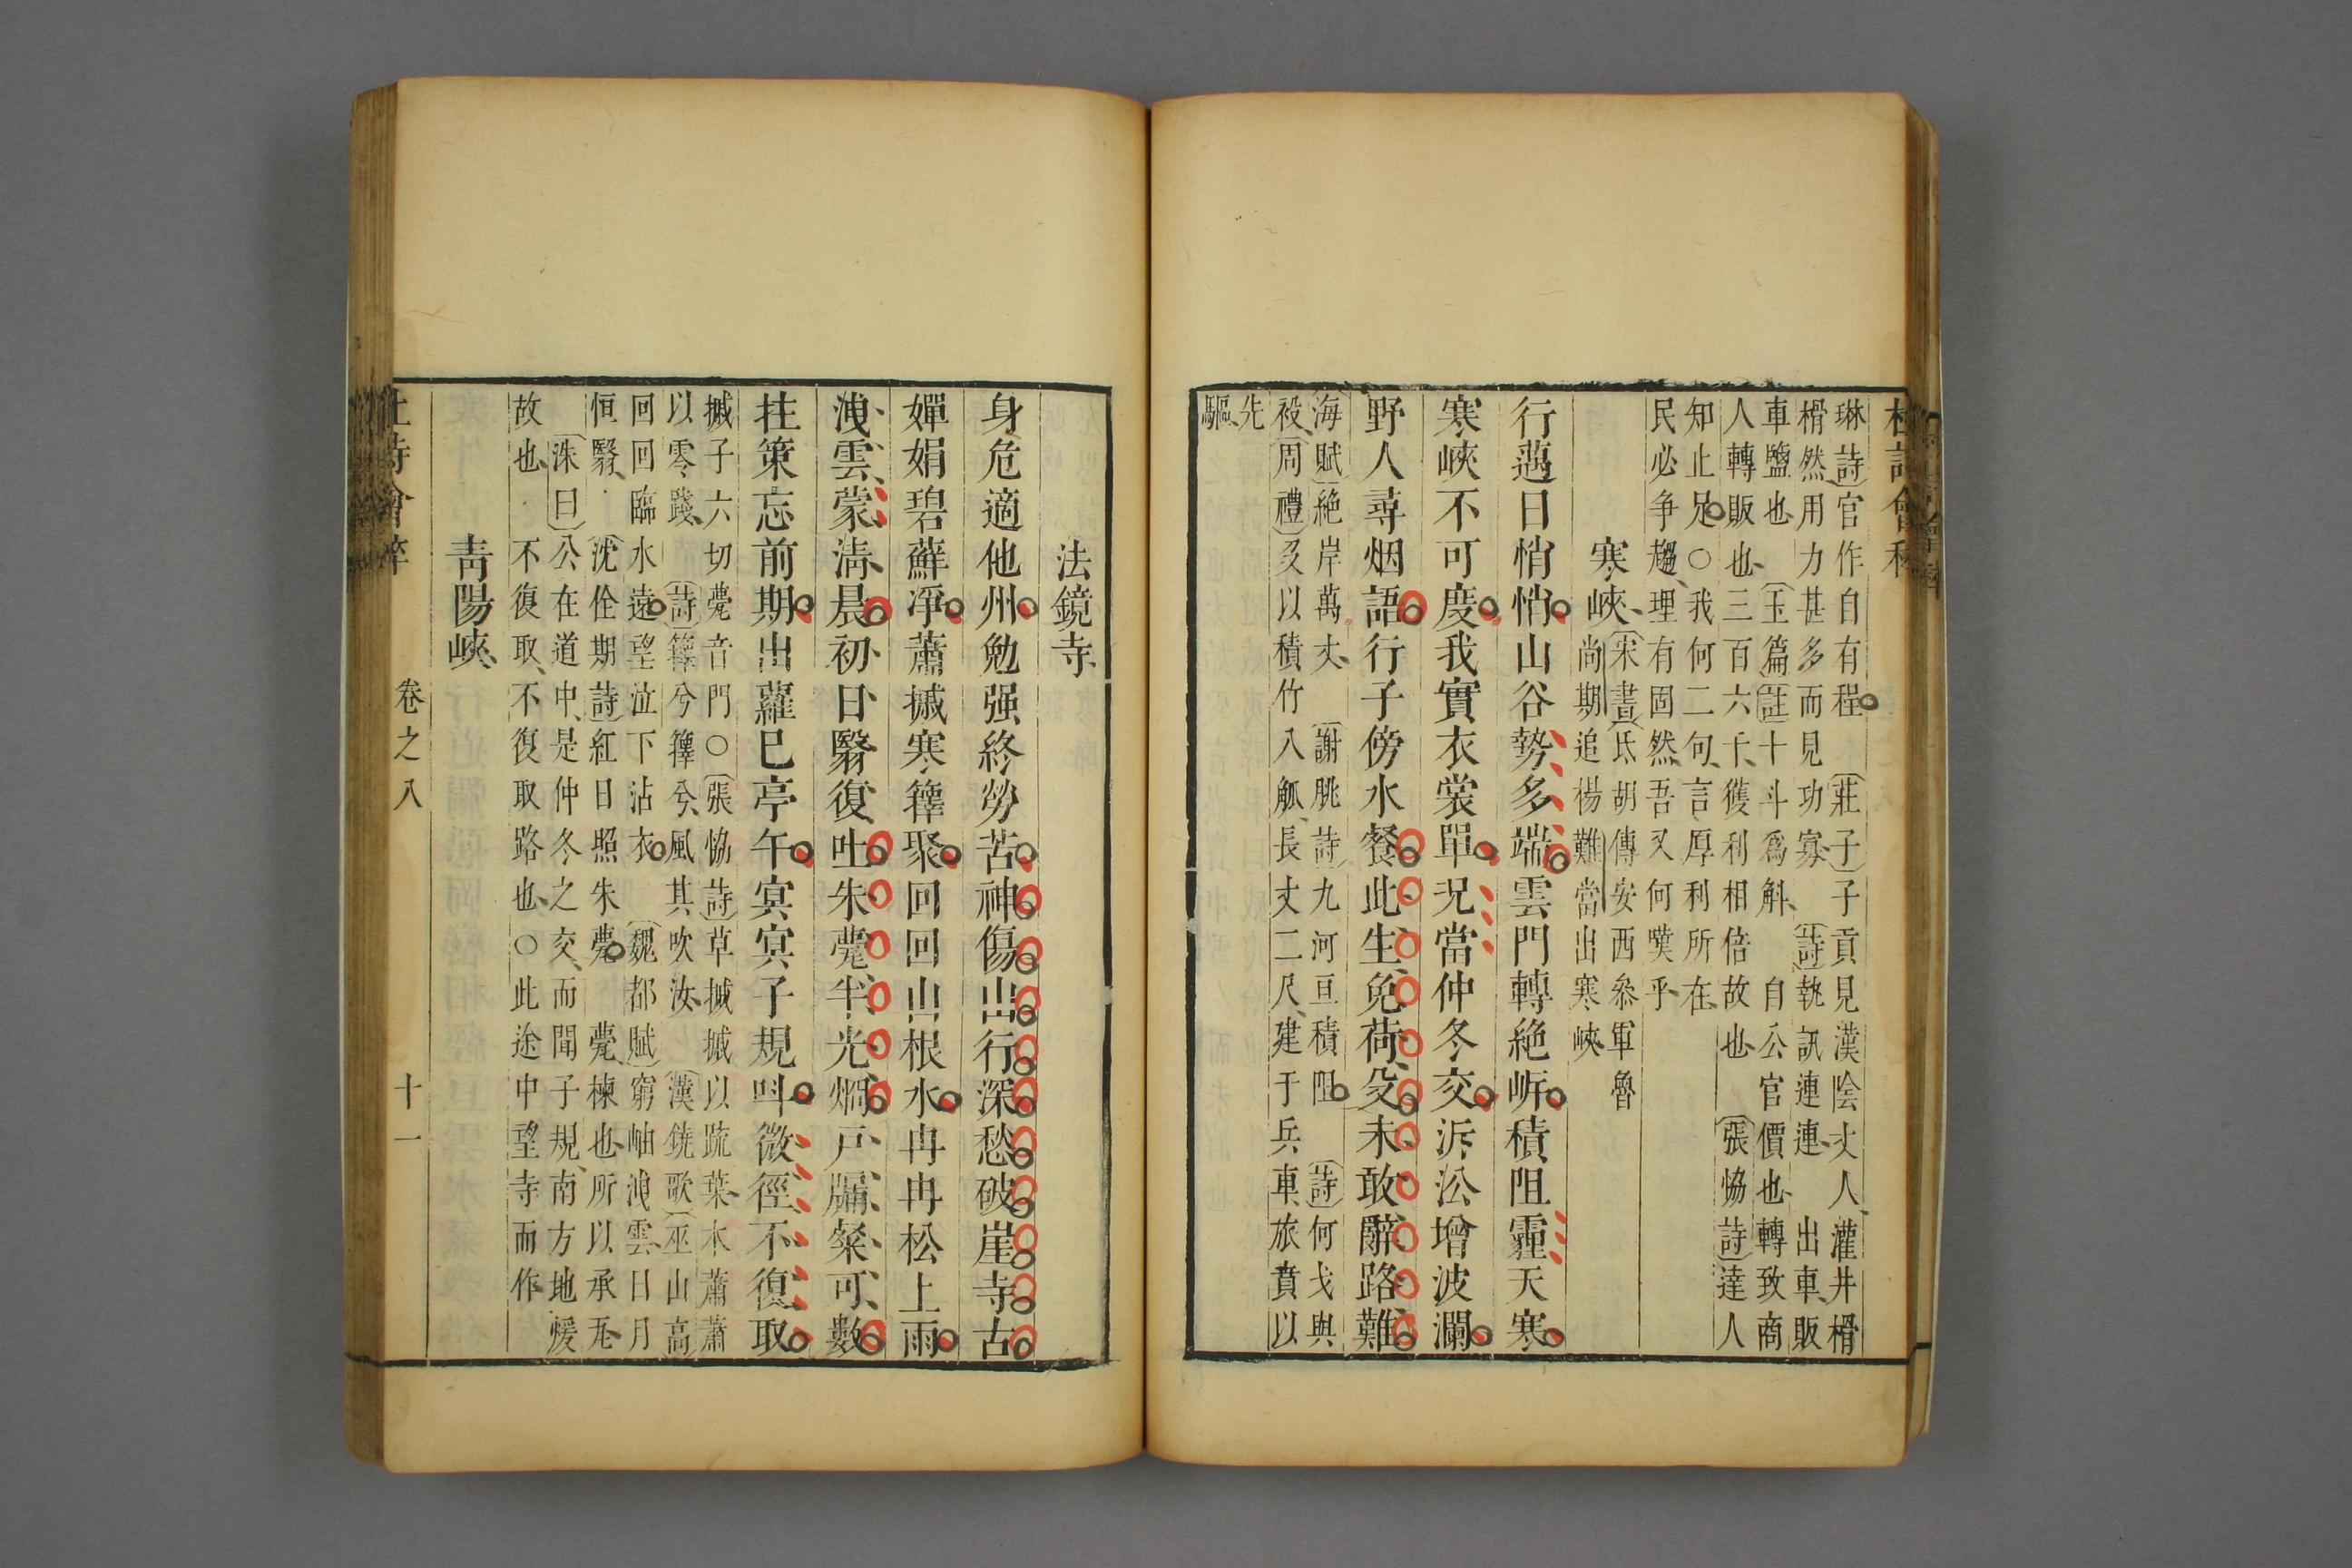 杜詩會稡
琳詩官作自有程 莊子子貢見漢陰丈人灌井榾
榾然用力甚多而見功寡 詩執訊連連 出車販
車鹽也 玉篇註十斗爲斛 自公官價也轉致商
人轉販也三百六千獲利相倍故也 張恊詩達人
知止足○我何二句言厚利所在
民必争趨理有固然吾又何嘆乎
寒峽 宋書氐胡傳安西叅軍魯
尚期追楊難當出寒峽
行邁日悄悄山谷勢多端雲門轉絕岍積阻霾天寒
寒峽不可度我實衣裳單況當仲冬交泝沿增波瀾
野人尋烟語行子傍水餐此生免荷殳未敢辭路難
海賦絕岸萬丈 謝朓詩九河亘積阻 詩何戈與
祋周禮殳以積竹八觚長丈二尺建于兵車旅賁以
先
驅
法鏡寺
身危適他州勉强終勞苦神傷山行深愁破崖寺古
嬋娟碧蘚淨蕭摵寒籜聚回回山根水冉冉松上雨
洩雲蒙淸晨初日翳復吐朱甍半光烱戸牖粲可數
拄策忘前期出蘿已亭午冥冥子規叫微徑不復取
摵子六切甍音門○張恊詩草摵摵以䟽葉木蕭蕭
以零踐 詩籜兮籜兮風其吹汝 漢鐃歌巫山高
回回臨水遠望泣下沾衣 魏都賦窮岫洩雲日月
恒翳 沈佺期詩紅日照朱甍 甍棟也所以承瓦
洙曰公在道中是仲冬之交而聞子規南方地煖
故也 不復取不復取路也○此途中望寺而作
靑陽峽
杜詩會稡 卷之八 十一